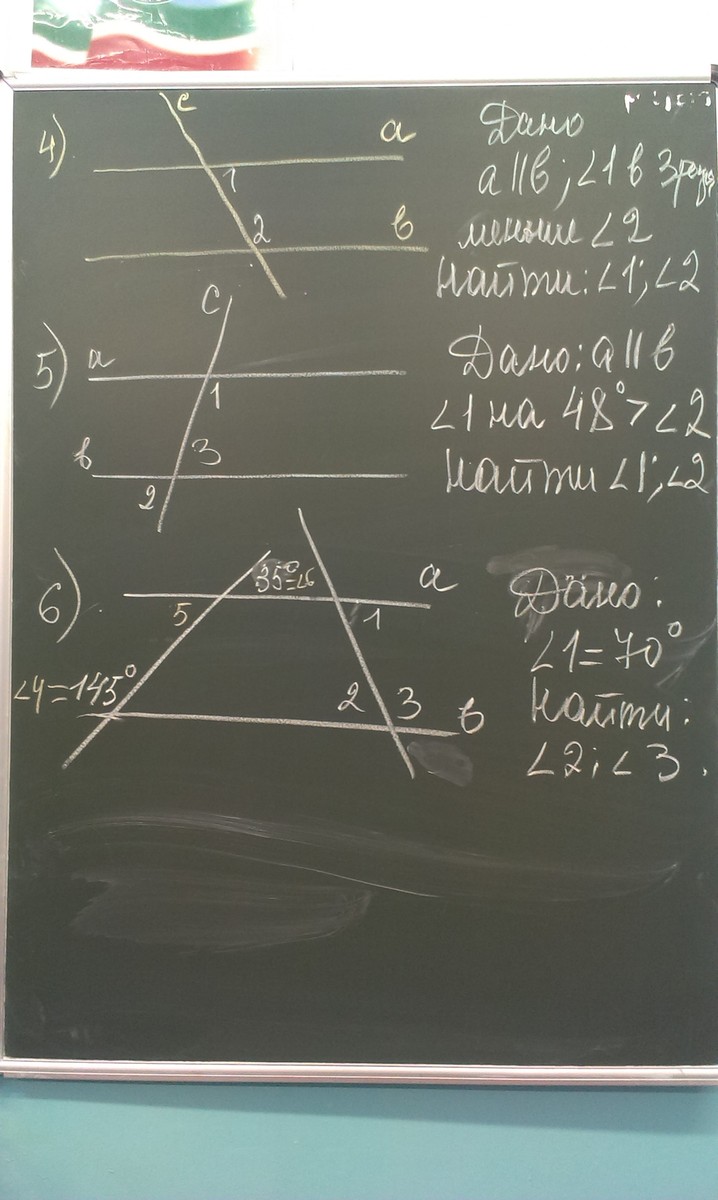 4)
c
a
1
2
в
Дано
a || в; ∠1 в 3 раза
меньше ∠2
Найти: ∠1; ∠2
5)
c
a
1
в
3
2
Дано: a || в
∠1 на 48° > ∠2
Найти ∠1; ∠2
6)
35°=∠6
a
5
1
∠4=145°
2
3
в
Дано:
∠1=70°
Найти:
∠2; ∠3.